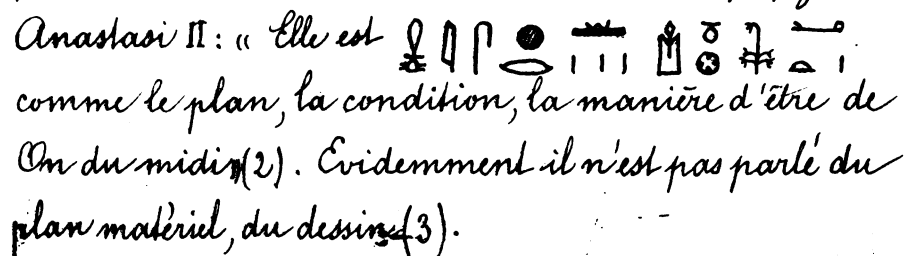 Anastasi II : « Elle est
comme le plan, la condition, la manière d'être de
On du midi (2). Evidemment il n'est pas parlé du
plan matériel, du dessin (3).